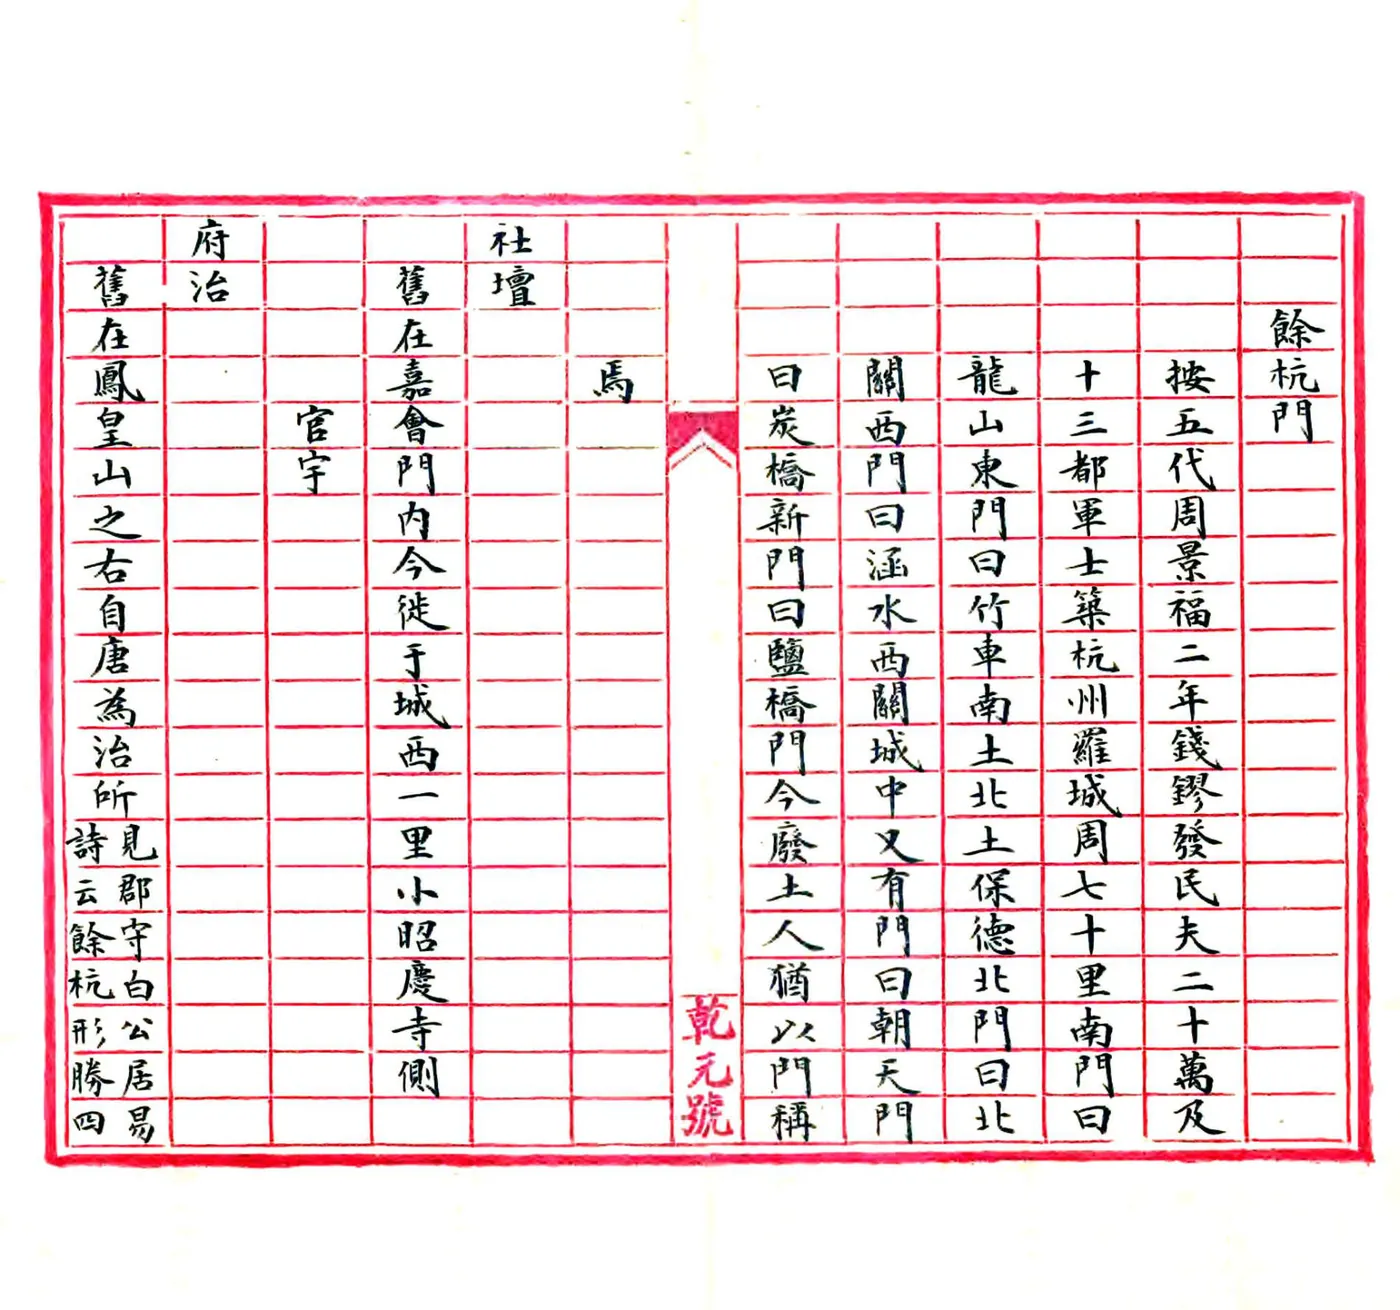 餘杭門
按五代周景福二年錢鏐發民夫二十萬及
十三都軍士築杭州羅城周七十里南門曰
龍山東門曰竹車南土北土保德北門曰北
關西門曰涵水西關城中又有門曰朝天門
曰炭橋新門曰鹽橋門今廢土人猶以門稱
乾元號
焉
社壇
舊在嘉會門内今徙于城西一里小昭慶寺側
官宇
府治
舊在鳳皇山之右自唐為治所見郡守白公居易
詩云餘杭形勝四